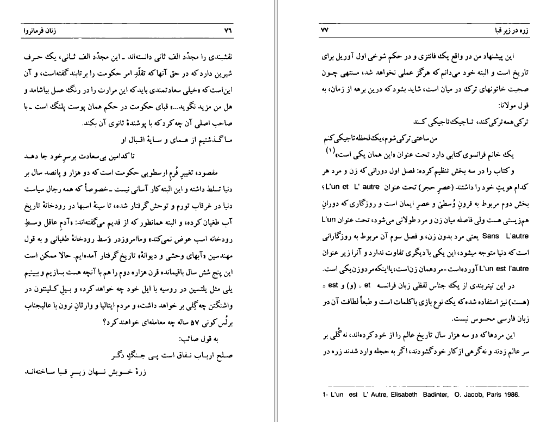 زنان فرمانروا
۷۶
نقشبندی را مجدّد الف ثانی دانسته‌اند ـ این مجدّد الف ثانی، یک حرف
شیرین دارد که در حق آنها که تقلّد امر حکومت را برتابند گفته‌است، و آن
این‌است که «خیلی سعادتمندی باید که این مرارت را در رنگ عسل بیاشامد و
هل من مزید نگوید...» قبای حکومت در حکم همان پوست پلنگ است ـ با
صاحب اصلی آن چه کرد که با پوشندهٔ ثانوی آن بکند.
ما گذشتیم از همای و سایهٔ اقبال او
تا کدامین بی‌سعادت بر سر خود جا دهد
مقصود، تغییر فُرم ارسطویی حکومت است که دو هزار و پانصد سال بر
دنیا تسلط داشته و این البته کار آسانی نیست ـ خصوصاً که همه رجال سیاست
دنیا در غرقاب تورم و توحش گرفتار شده، تا سینهٔ اسبها در رودخانهٔ تاریخ
آب طغیان کرده، و البته همانطور که از قدیم می‌گفته‌اند: «آدم عاقل وسط
رودخانه اسب عوض نمی‌کند» و ما امروز در وَسط رودخانهٔ طغیانی و به قول
مهندسین «آبهای وحشی و دیوانهٔ» تاریخ گرفتار آمده‌ایم. حالا ممکن است
این پنج شش سال باقیماندهٔ قرن هزاره دوم را هم با آنچه هست بسازیم و ببینیم
یلی مثل یلتسین در روسیه با ایل خود چه خواهد کرد، و بیل کلینتون در
واشنگتن چه گِلی بر خواهد داشت، و مردم ایتالیا و وارثان نرون با عالیجناب
برلُس‌کونی ۵۷ ساله چه معامله‌ای خواهند کرد؟
به قول صائب:
صلح ارباب نفاق است پی جنگ دگر
زره خویش نهان زیر قبا ساخته‌اند
زره در زیر قبا
۷۷
این پیشنهاد من در واقع یک فانتزی و در حکم شوخی اول آوریل برای
تاریخ است و البته خود می‌دانم که هرگز عملی نخواهد شد، منتهی چون
صحبت خاتونهای ترک در میان است، شاید بشود که درین برهه از زمان، به
قول مولانا:
ترکی همه ترکی کند، تاجیک تاجیکی کند
من ساعتی ترکی شوم، یک لحظه تاجیکی کنم
یک خانم فرانسوی کتابی دارد تحت عنوان «این همان یکی است»(۱)
و کتاب را در سه بخش تنظیم کرده: فصل اول دورانی که زن و مرد هر
کدام هویتِ خود را داشتند (عصر حجر) تحت عنوان L'un et L' autre ؛
بخش دوم مربوط به قرون وُسطیٰ و عصر ایمان است و روزگاری که دوران
هم‌زیستی هست ولی فاصله میان زن و مرد طولانی می‌شود، تحت عنوان L'un
Sans L'autre یعنی مرد بدون زن، و فصل سوم آن مربوط به روزگارانی
است که دنیا متوجه میشود، این یکی با دیگری تفاوت ندارد و آنرا زیر عنوان
L'un est l'autre آورده‌است، مرد همان زن‌است، یا اینکه مرد وزن یکی است.
در این تیتربندی از یک جناس لفظی زبان فرانسه et ، (و) و est ،
(هست) نیز استفاده شده که یک نوع بازی با کلمات است و طبعاً لطافت آن در
زبان فارسی محسوس نیست.
این مردها که دو هزار سال تاریخ عالم را از خود کرده‌اند، نه گُلی بر
سر عالم زدند و نه گرهی از کار خود گشودند، اگر به حجله وارد شدند زره در
1- L'un est L' Autre, Elisabeth Badinter, O. Jacob, Paris 1986.